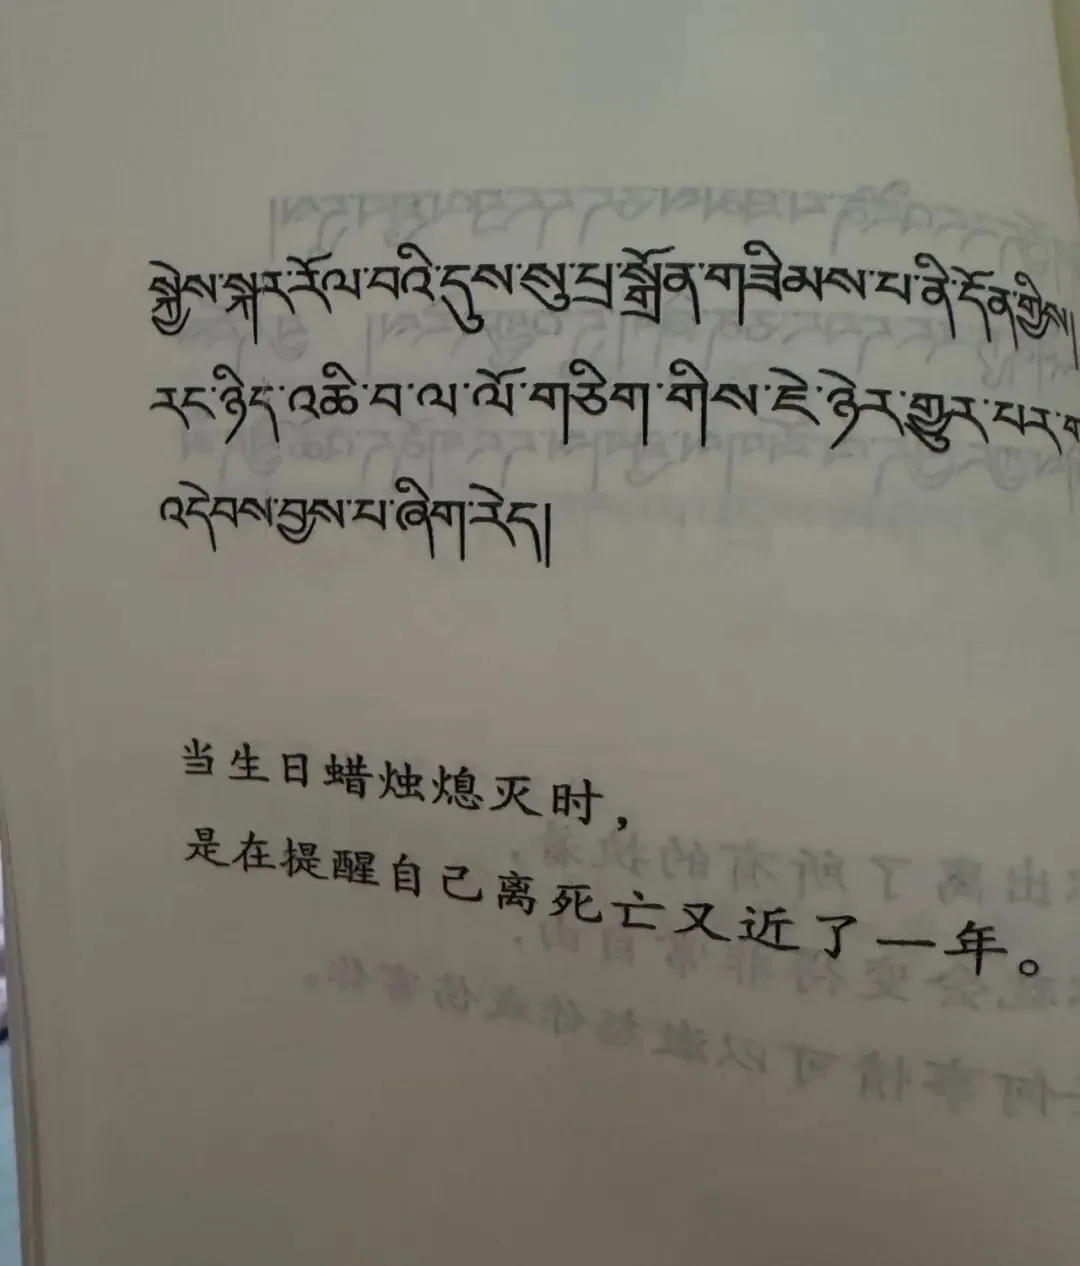 སྐྱེས་སྐར་རོལ་བའི་དུས་སུ་པྲ་སྒྲོན་གཟིམས་པ་ནི་དོན་གྱིས།
རང་ཉིད་འཆི་བ་ལ་ལོ་གཅིག་གིས་ཇེ་ཉེར་གྱུར་པར་
འདེབས་བྱས་པ་ཞིག་རེད།
当生日蜡烛熄灭时，
是在提醒自己离死亡又近了一年。